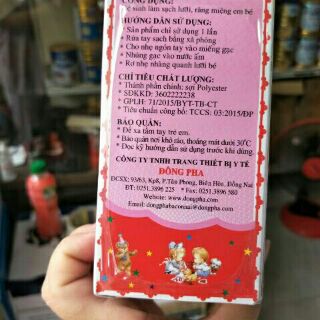 CÔNG DỤNG:
Vệ sinh làm sạch lưỡi, răng miệng em bé
HƯỚNG DẪN SỬ DỤNG:
- Sản phẩm chỉ sử dụng 1 lần
- Rửa tay sạch bằng xà phòng
- Cho nhẹ ngón tay vào miếng gạc
- Nhúng gạc vào nước ấm
- Rơ nhẹ nhàng quanh lưỡi bé
CHỈ TIÊU CHẤT LƯỢNG:
- Thành phần chính: sợi Polyester
- SĐKKD: 3602222238
- GPLH: 71/2015/BYT-TB-CT
- Tiêu chuẩn công bố: TCCS: 03:2015/ĐP
BẢO QUẢN:
- Để xa tầm tay trẻ em.
- Bảo quản nơi khô ráo, thoáng mát dưới 30°C
- Đọc kỹ hướng dẫn sử dụng trước khi dùng
CÔNG TY TNHH TRANG THIẾT BỊ Y TẾ
ĐÔNG PHA
ĐCSX: 93/63, Kp8, P.Tân Phong, Biên Hòa, Đồng Nai
ĐT: 0251.3896 225 * Fax: 0251.3896 580
Website: www.dongpha.com
Email: